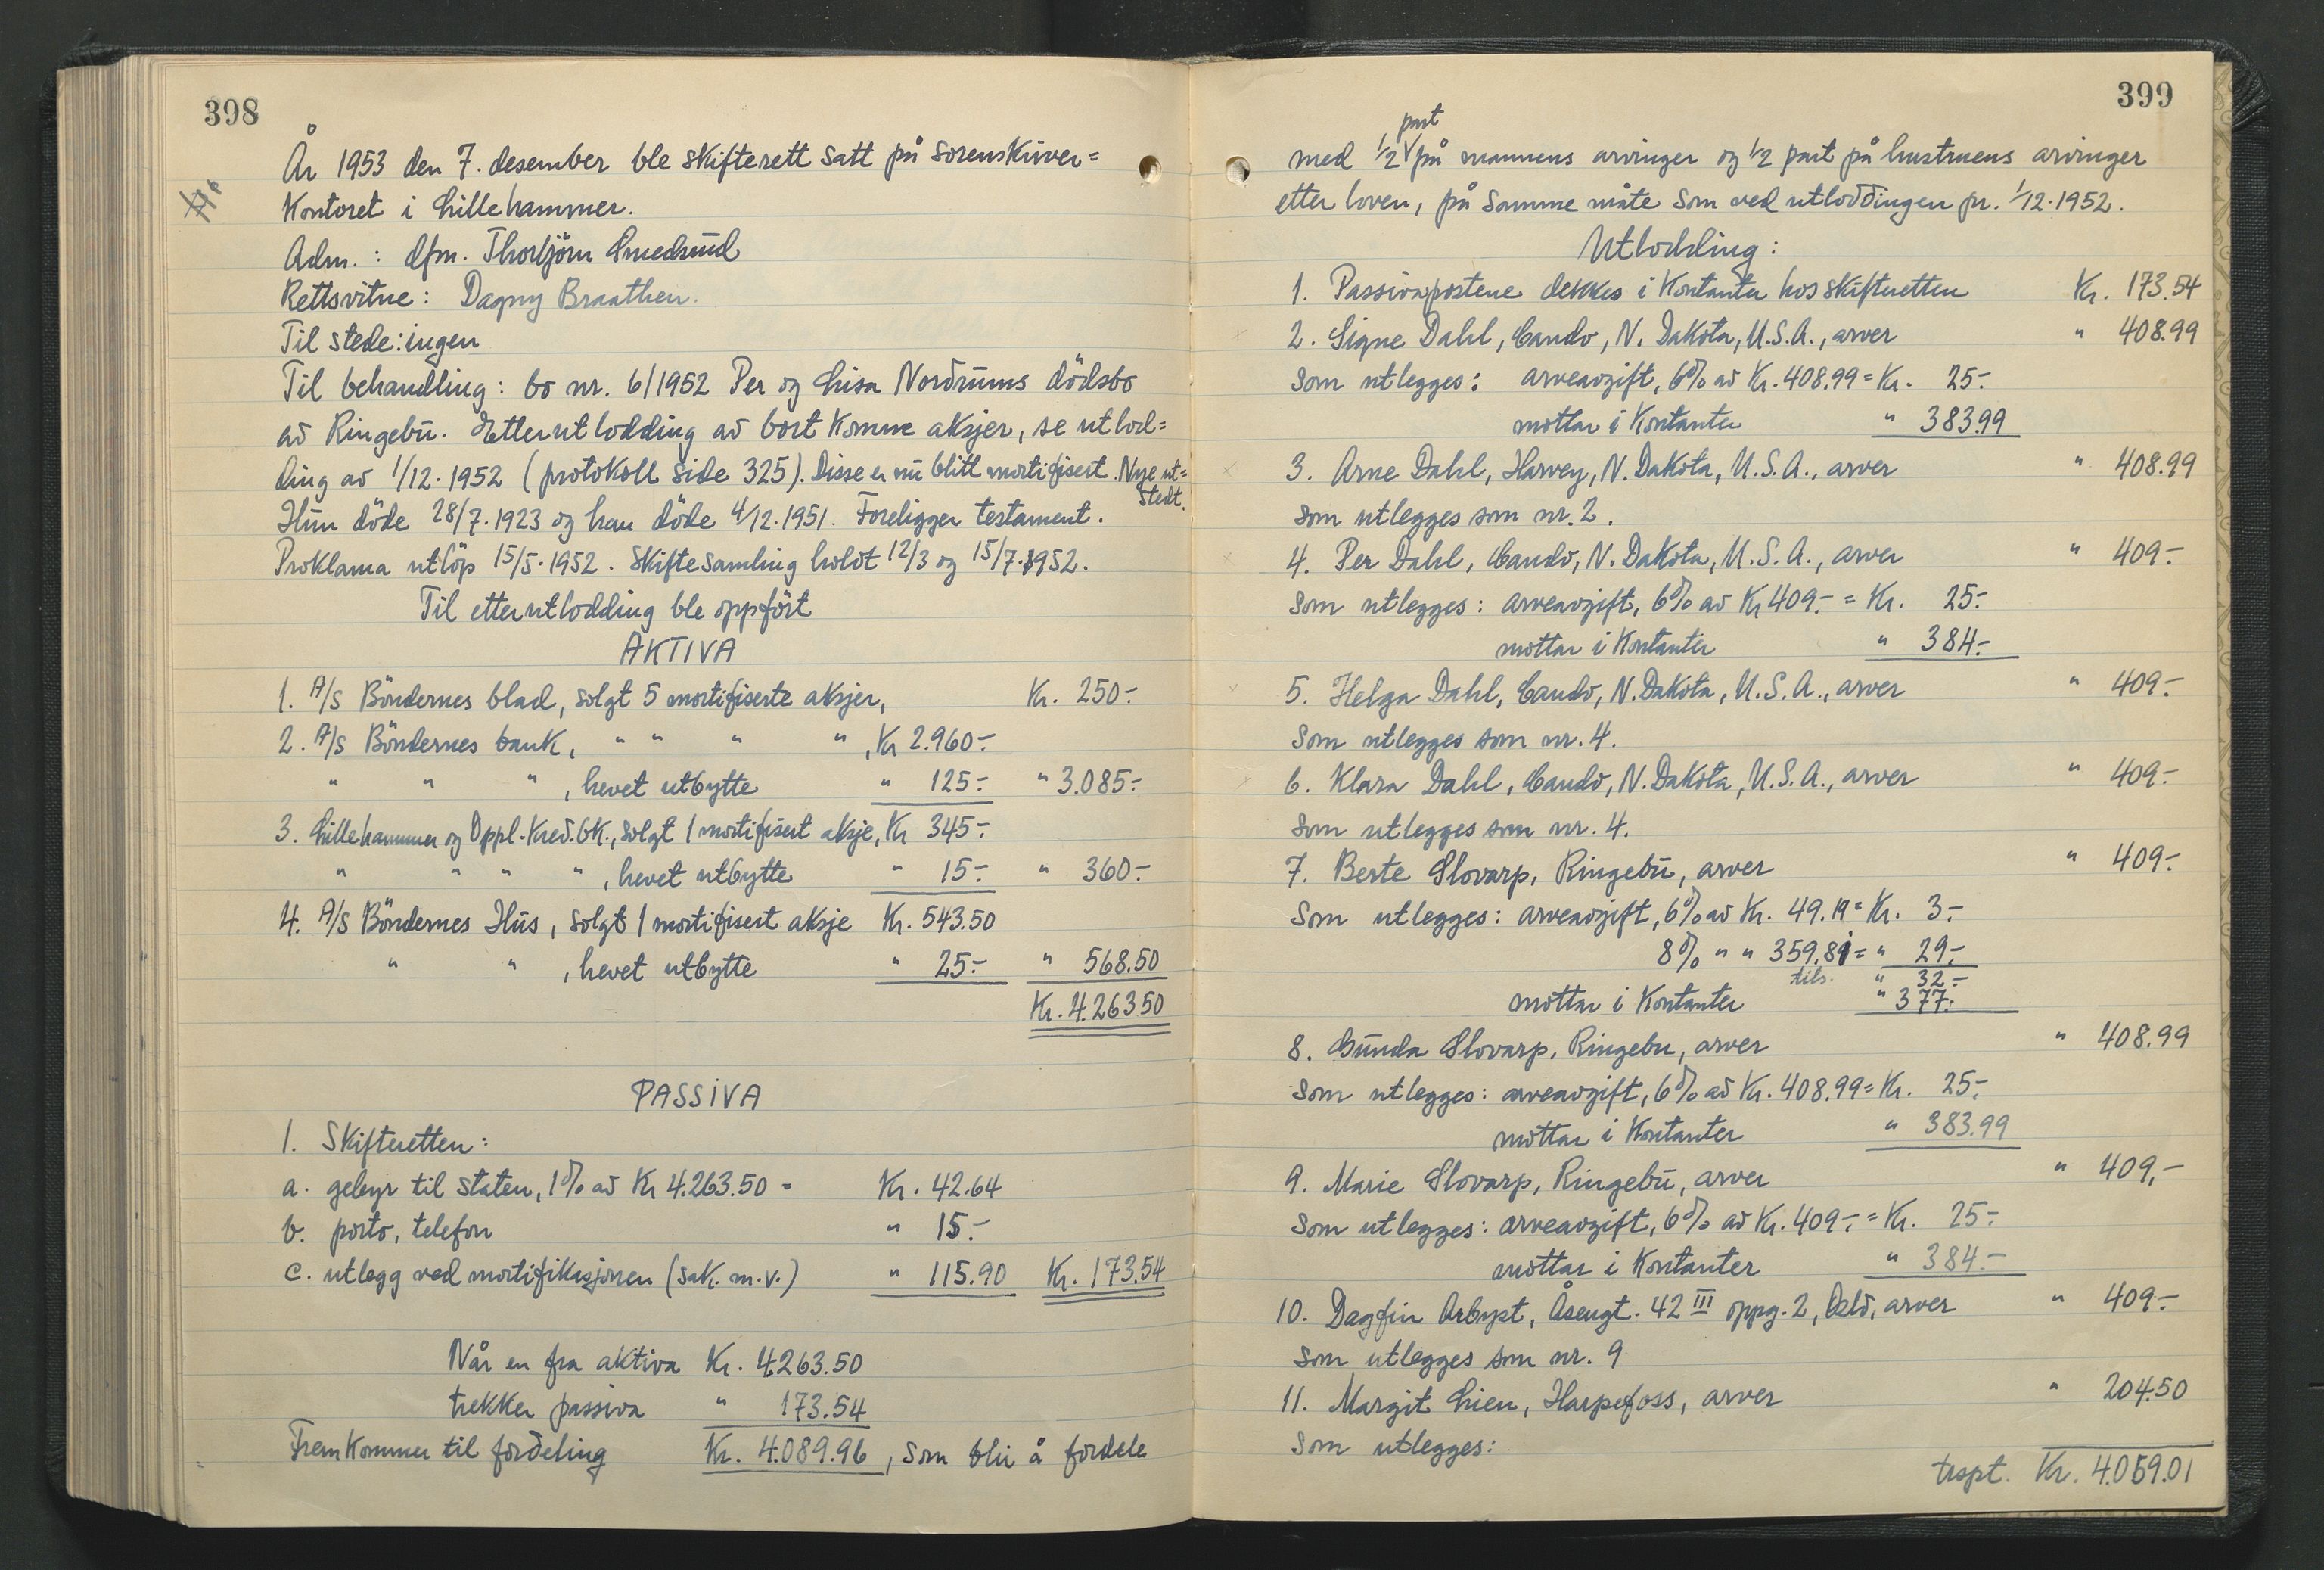 398
År 1953 den 7. desember ble skifterett satt på sorenskriver=
kontoret i Lillehammer.
Adm.: dfm. Thorbjörn Smedsrud
Rettsvitne: Dagny Braathen.
Til stede: ingen
Til behandling: bo nr. 6/1952 Per og Lisa Nordrums dödsbo
av Ringebu. Etterutlodding av bortkomne aksjer, se utlod=
ding av 1/12.1952 (protokoll side 325). Disse er nu blitt mortifisert. Nye ut=
stedt.
Hun döde 28/7.1923 og han döde 4/12.1951. Foreligger testament.
Proklama utlöp 15/5.1952. Skiftesamling holdt 12/3 og 15/7.1952.
Til etterutlodding ble oppfört
AKTIVA
1. A/S Böndernes blad, solgt 5 mortifiserte aksjer, Kr. 250.-
2. A/S Böndernes bank, " " " ", Kr 2.960.-
" " ", hevet utbytte " 125.- " 3.085.-
3. Lillehammer og Oppl. Kred.bk., solgt 1 mortifisert aksje, Kr 345.-
" " " ", hevet utbytte " 15.- " 360.-
4. A/S Böndernes Hus, solgt 1 mortifisert aksje Kr. 543.50
" ", hevet utbytte " 25.- " 568.50
Kr. 4.263.50
PASSIVA
1. Skifteretten:
a. gebyr til staten, 1% av Kr 4.263.50 = Kr. 42.64
b. porto, telefon " 15.-
c. utlegg ved mortifikasjonen (sak. m.v.) " 115.90 Kr. 173.54
Når en fra aktiva Kr. 4263.50
trekker passiva " 173.54
Fremkommer til fordeling Kr. 4.089.96, som blir å fordele
399
part
med 1/2 på mannens arvinger og 1/2 part på hustruens arvinger
etter loven, på samme måte som ved utloddingen pr. 1/12.1952.
Utlodding:
1. Passivapostene dekkes i kontanter hos skifteretten Kr. 173.54
2. Signe Dahl, Cando, N. Dakota, U.S.A., arver " 408.99
som utlegges: arveavgift, 6% av Kr. 408.99 = Kr. 25.-
mottar i kontanter " 383.99
3. Arne Dahl, Harvey, N. Dakota, U.S.A., arver " 408.99
som utlegges som nr. 2.
4. Per Dahl, Cando, N. Dakota, U.S.A., arver " 409.-
som utlegges: arveavgift, 6% av Kr 409.- = Kr. 25.-
mottar i kontanter " 384.-
5. Helga Dahl, Cando, N. Dakota, U.S.A., arver " 409.-
som utlegges som nr. 4.
6. Klara Dahl, Cando, N. Dakota, U.S.A., arver " 409.-
som utlegges som nr. 4.
7. Berte Slovarp, Ringebu, arver " 409.-
som utlegges: arveavgift, 6% av Kr. 49.19 = Kr. 3.-
8% " " 359.81 = " 29.-
tils. " 32.-
mottar i kontanter " 377.-
8. Gunda Slovarp, Ringebu, arver " 408.99
som utlegges: arveavgift, 6% av Kr. 408.99 = Kr. 25.-
mottar i kontanter " 383.99
9. Marie Slovarp, Ringebu, arver " 409,-
som utlegges: arveavgift, 6% av Kr. 409.- = Kr. 25.-
mottar i kontanter " 384.-
10. Dagfin Arbyst, Åsengt. 42 III oppg. 2, Oslo, arver " 409.-
som utlegges som nr. 9
11. Margit Lien, Harpefoss, arver " 204.50
som utlegges:
trspt. Kr. 4.059.01